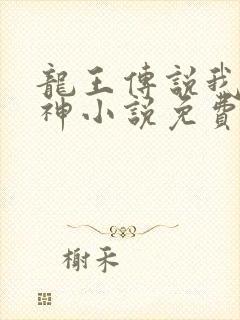 龍王傳說我
神小說免費
榭禾